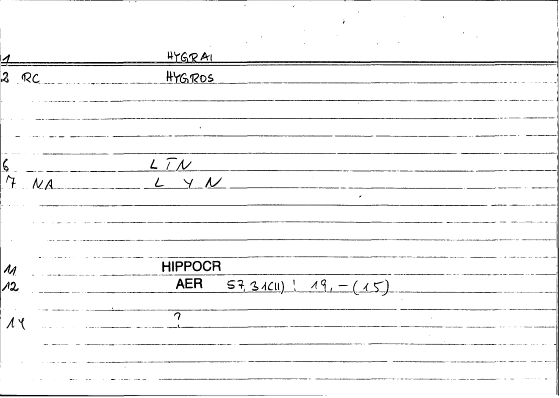 1 HYGRAI
2 RC HYGROS
6 LTN
7 NA L Y N
11 HIPPOCR
12 AER 57,31(II) ! 19,-(15)
14 ?